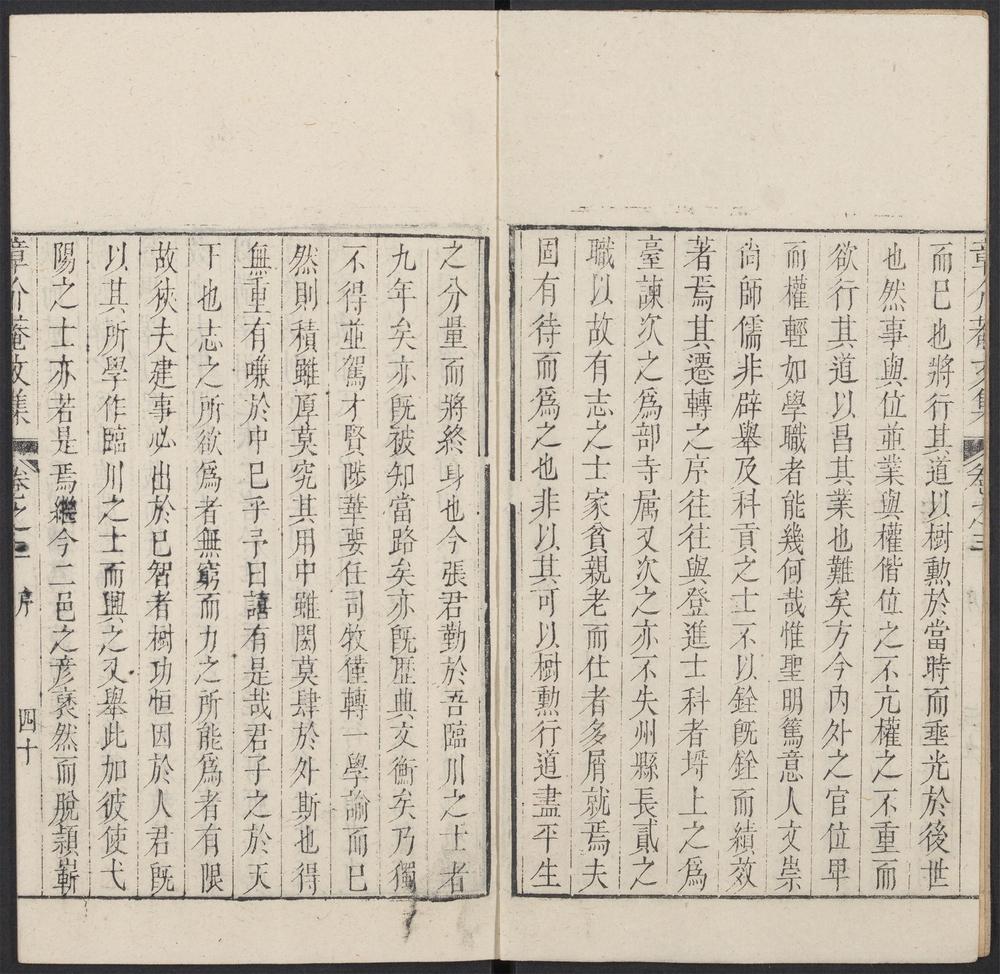 章介菴文集 卷之三
而巳也將行其道以樹勲於當時而垂光於後世
也然事與位並業與權偕位之不亢權之不重而
欲行其道以昌其業也難矣方今内外之官位卑
而權輕如學職者能幾何哉惟聖明篤意人文崇
尚師儒非辟舉及科貢之士不以銓既銓而績效
著焉其遷轉之序往往與登進士科者埒上之爲
臺諫次之爲部寺属又次之亦不失州縣長貳之
職以故有志之士家貧親老而仕者多屑就焉夫
固有待而爲之也非以其可以樹勲行道盡平生
之分量而將終身也今張君勤於吾臨川之士者
九年矣亦既被知當路矣亦既歷典文衡矣乃獨
不得並駕才賢陟華要任司牧僅轉一學諭而巳
然則積雖厚莫究其用中雖閎莫肆於外斯也得
無重有嗛於中巳乎予曰譆有是哉君子之於天
下也志之所欲爲者無窮而力之所能爲者有限
故俠夫建事必出於巳智者樹功恒因於人君既
以其所學作臨川之士而興之又舉此加彼使弋
陽之士亦若是焉繼今二邑之彦褎然而脫頴嶄
章介菴文集 卷之 序 四十